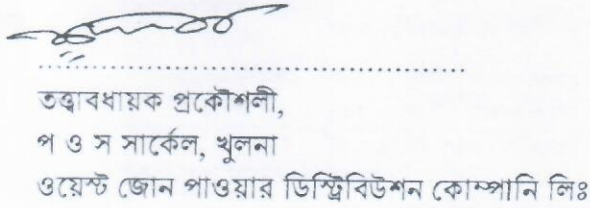 তত্ত্বাবধায়ক প্রকৌশলী,
প ও স সার্কেল, খুলনা
ওয়েস্ট জোন পাওয়ার ডিস্ট্রিবিউশন কোম্পানি লিঃ